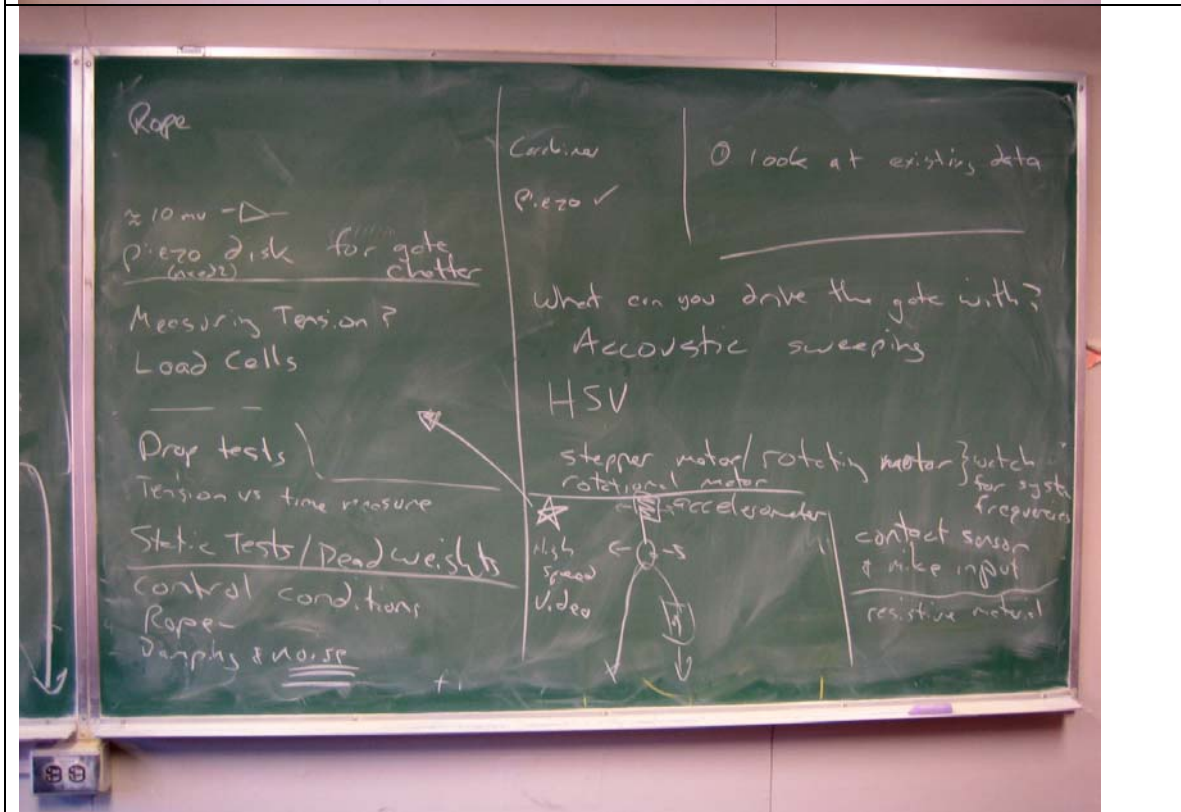 Rope
≈ 10 mv
piezo disk for gate
(need 2) chatter
Measuring Tension?
Load Cells
Drop tests
Tension vs time measure
Static Tests/Dead weights
Control conditions
Rope-
Damping & noise
Carabiner
Piezo ✓
① look at existing data
What can you drive the gate with?
Accoustic sweeping
HSV
stepper motor/rotating motor } watch
rotational motor for system
frequencies
accelerometer
High
speed
Video
contact sensor
& mike input
resistive